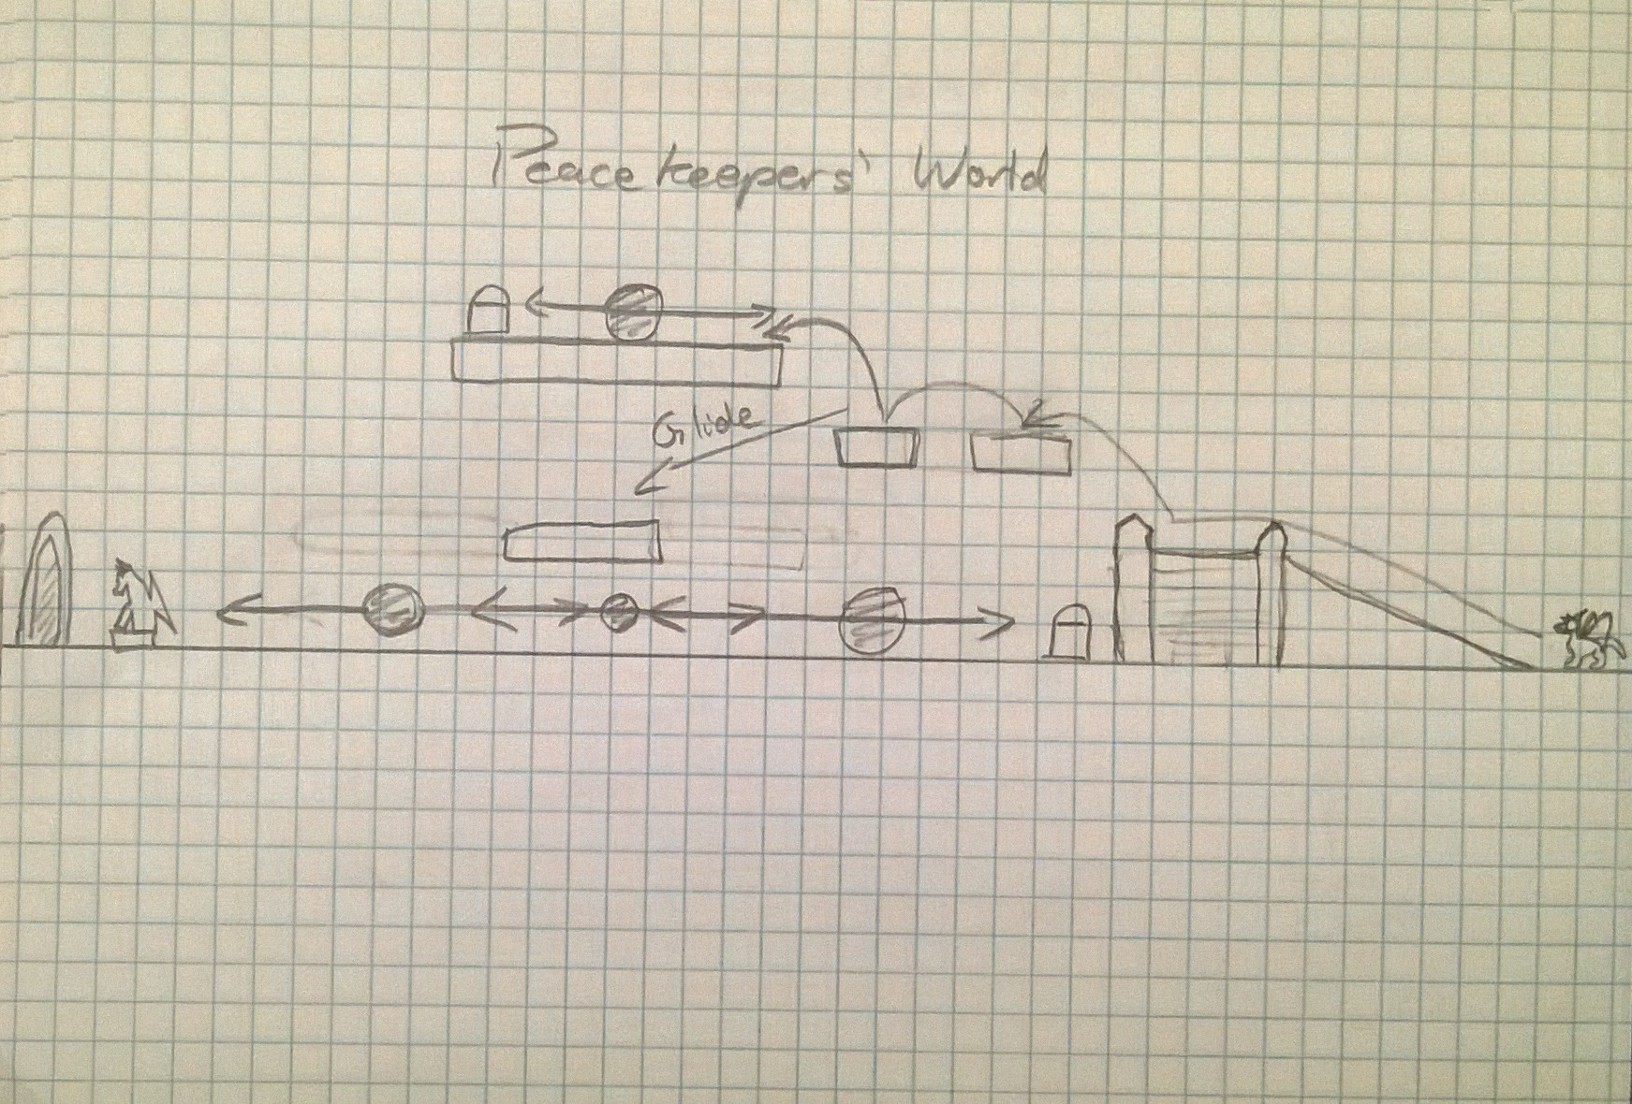 Peacekeepers' World
Glide